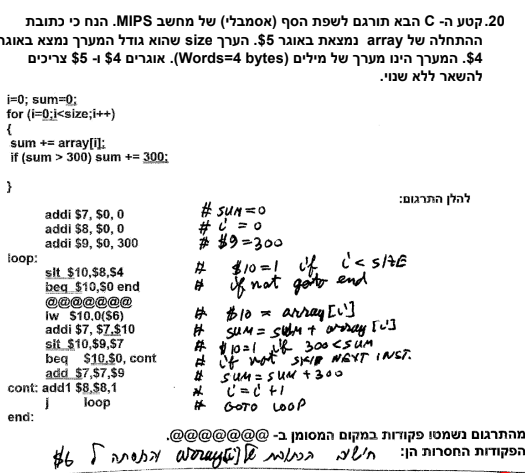 20. קטע ה- C הבא תורגם לשפת הסף (אסמבלי) של מחשב MIPS. הנח כי כתובת
ההתחלה של array נמצאת באוגר 5$. הערך size שהוא גודל המערך נמצא באוגר
4$. המערך הינו מערך של מילים (Words=4 bytes). אוגרים 4$ ו- 5$ צריכים
להשאר ללא שנוי.
i=0; sum=0;
for (i=0;i<size;i++)
{
sum += array[i];
if (sum > 300) sum += 300;
}
להלן התרגום:
addi $7, $0, 0 # SUM=0
addi $8, $0, 0 # i = 0
addi $9, $0, 300 # $9=300
loop:
slt $10,$8,$4 # $10=1 if i< SIZE
beq $10,$0 end # if not goto end
@@@@@@@
lw $10,0($6) # $10 = array[i]
addi $7, $7,$10 # SUM = SUM + array [i]
slt $10,$9,$7 # $10=1 if 300<SUM
beq $10,$0, cont # if not SKIP NEXT INST.
add $7,$7,$9 # SUM = SUM +300
cont: add1 $8,$8,1 # i = i +1
j loop # GOTO LOOP
end:
מהתרגום נשמטו פקודות במקום המסומן ב- @@@@@@@.
הפקודות החסרות הן: חישוב הכתובת של array[i] והכנסתה ל $6